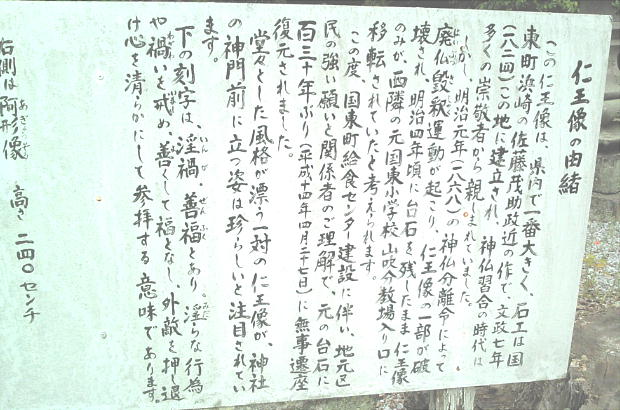 仁王像の由緒
この仁王像は、県内で一番大きく、石工は国
東町浜崎の佐藤茂助政近の作で、文政七年
(一八二四)この地に建立され、神仏習合の時代は
多くの崇敬者から親しまれていました。
しかし、明治元年(一八六八)の神仏分離令によって
廃仏毀釈運動が起こり、仁王像の一部が破
壊され、明治四年頃に台石を残したまま仁王像
のみが西隣の元国東小学校山吹分教場入り口に
移転されていたと考えられます。
この度、国東町給食センター建設に伴い、地元区
民の強い願いと関係者のご理解で、元の台石に
百三十年ぶり(平成十四年四月二十七日)に無事遷座
復元されました。
堂々とした風格が漂う一対の仁王像が、神社
の神門前に立つ姿は珍らしいと注目されてい
ます。
下の刻字は、淫禍・善福とあり。淫らな行為
や禍いを戒め、善くして福となし、外敵を押し退
け心を清らかにして参拝する意味であります。
右側は阿形像 高さ 二四〇センチ